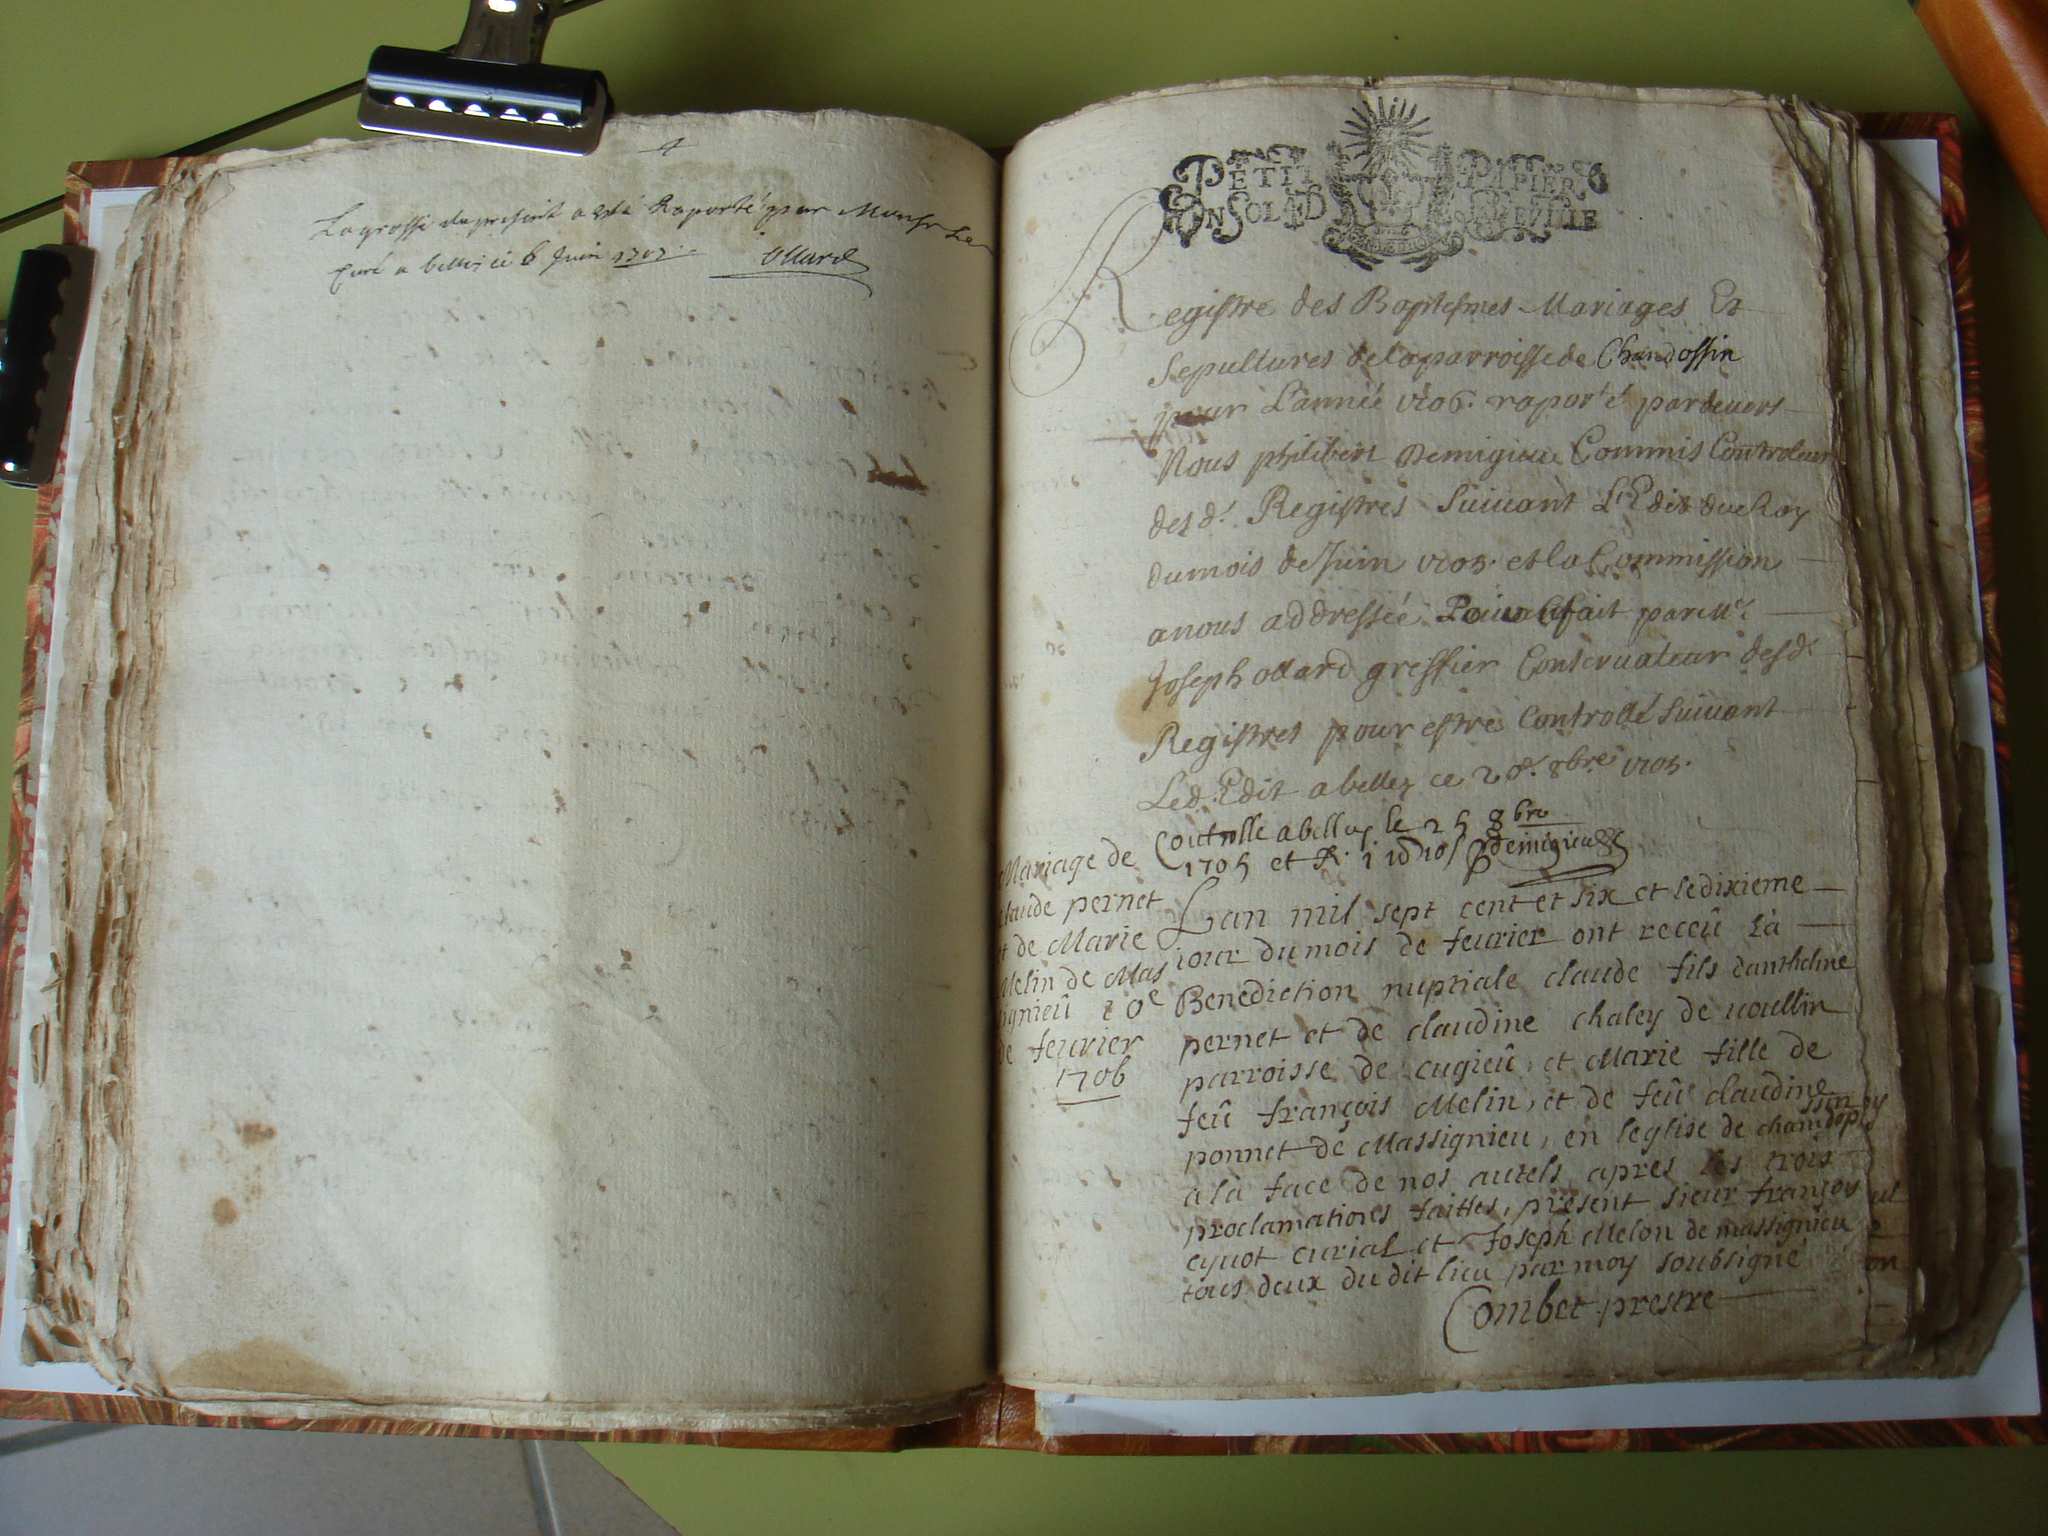 La grosse du present a esté Raporté par Monsr Le
Curé a belley ce 6 Juin 1707
Ollard
PETIT PAPIER
UN SOL LA FEVILLE
Registre des Baptesmes Mariages Et
Sepultures de la parroisse de Chandossin
pour L'année 1706. raporté pardevers
Nous philibert Demigieu Commis Controleur
des d. Registres Suiuant L'Edit du Roy
du mois de Juin 1705. et la Commission
a nous addressée fait par Me.
Joseph ollard greffier Conseruateur desd.
Registres pour estre Controllé Suiuant
Led. Edit a belley ce 8bre 1705.
Controlle a belley le 25 8bre
1705 et R. Demigieu
Mariage de
claude pernet
et de Marie
Melin de Mas
ignieû 10e
de feurier
1706
Lan mil sept cent et six et le dixieme
iour du mois de feurier ont receû là
Benediction nuptiale claude fils danthelme
pernet et de claudine chaley de uoullin
parroisse de cugieû, et Marie fille de
feû françois Melin, et de feûe claudine
ponnet de Massignieu, en leglise de chandossin
a là face de nos autels apres les trois
proclamations faittes, present sieur françois
cyuot curial et Joseph Melon de massignieu
tous deux du dit lieu par moy soubsigné
Combet prestre